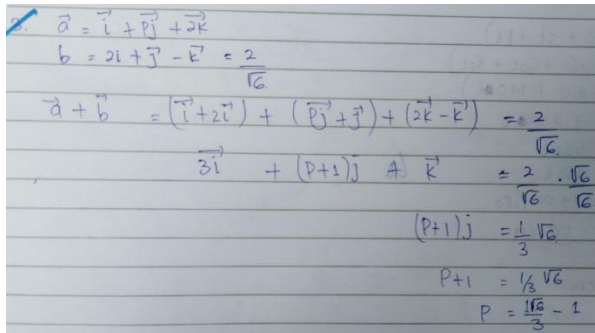 3. a⃗ = i⃗ + pj⃗ + 2k⃗
b = 2i + j⃗ - k⃗ = 2/√6
a⃗ + b⃗ = (i⃗ + 2i⃗) + (pj⃗ + j⃗) + (2k⃗ - k⃗) = 2/√6
3i⃗ + (p+1)j + k⃗ = 2/√6 . √6/√6
(p+1)j = 1/3 √6
p+1 = 1/3 √6
p = 1√6/3 - 1